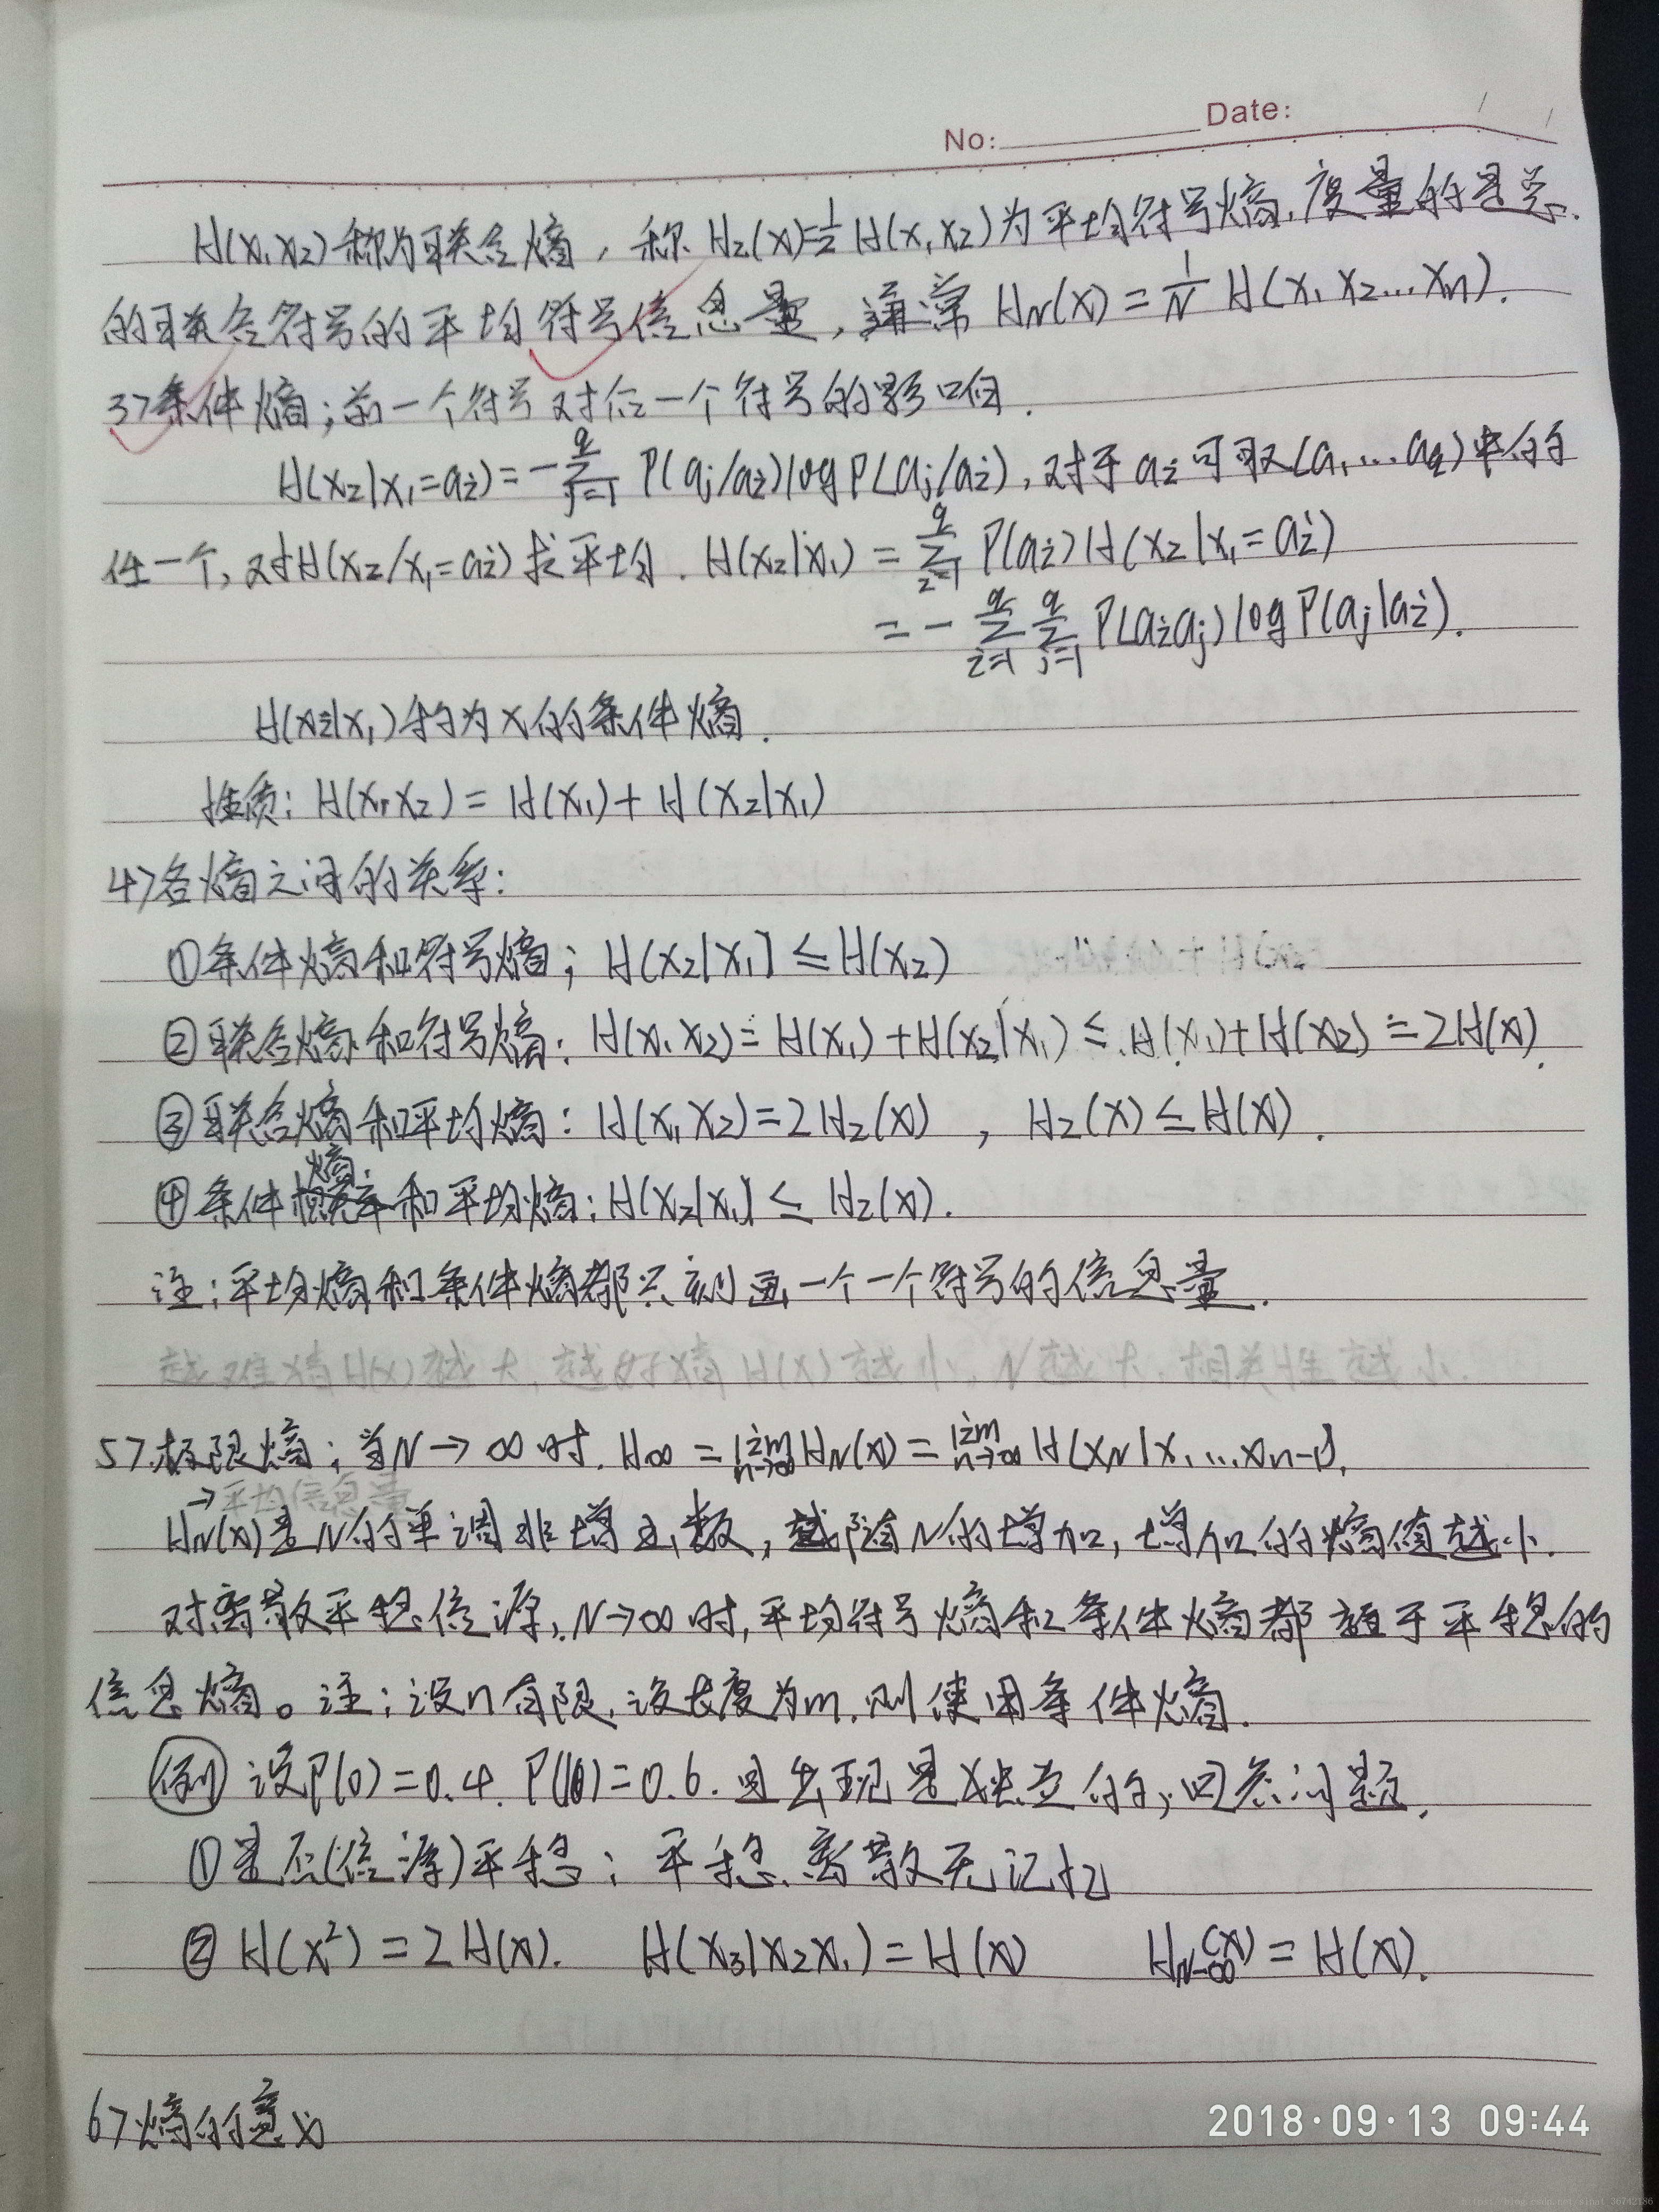 No: Date: / /
H(X₁X₂)称为联合熵，称H₂(X)=½H(X₁X₂)为平均符号熵，度量的是总
的联合符号的平均符号信息量，通常 H_N(X) = 1/N H(X₁X₂…Xn).
3>条件熵；前一个符号对后一个符号的影响.
H(X₂|X₁=ai)=-∑_{j=1}^{q} P(aj/ai)logP(aj/ai)，对于ai可取(a₁…aq)中的
任一个，对H(X₂/X₁=ai)求平均. H(X₂|X₁) = ∑_{i=1}^{q} P(ai)H(X₂|X₁=ai)
= - ∑_{i=1}^{q} ∑_{j=1}^{q} P(aiaj)logP(aj|ai).
H(X₂|X₁)称为X的条件熵.
性质: H(X₁X₂) = H(X₁)+H(X₂|X₁)
4>各熵之间的关系:
①条件熵和符号熵；H(X₂|X₁) ≤ H(X₂)
②联合熵和符号熵: H(X₁X₂)=H(X₁)+H(X₂|X₁) ≤ H(X₁)+H(X₂)=2H(X).
③联合熵和平均熵: H(X₁X₂)=2H₂(X) , H₂(X) ≤ H(X).
④条件熵和平均熵: H(X₂|X₁) ≤ H₂(X).
注；平均熵和条件熵都只刻画一个一个符号的信息量.
越难猜H(X)越大, 越好猜H(X)越小, N越大, 相关性越小.
5>极限熵；当N→∞时. H∞ = lim_{n→∞} H_N(X) = lim_{n→∞} H(X_N|X₁…Xn-1).
→平均信息量
H_N(X)是N的单调非增函数，随N的增加，增加的熵值越小.
对离散平稳信源，N→∞时，平均符号熵和条件熵都趋于平稳的
信息熵。注；设n有限，设长度为m，则使用条件熵.
例 设P(0)=0.4. P(1)=0.6. 且出现是独立的，回答问题.
①是否(信源)平稳；平稳、离散无记忆
② H(X²) = 2H(X). H(X₃|X₂X₁)=H(X) H_{N→∞}(X) = H(X).
6>熵的意义
2018·09·13 09:44